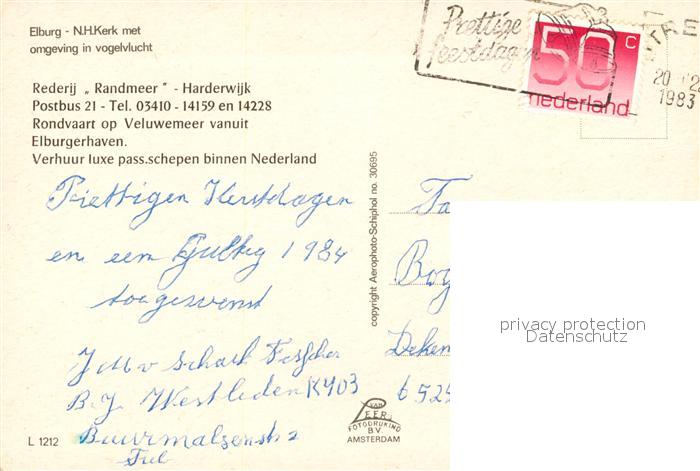 Elburg - N.H.Kerk met
omgeving in vogelvlucht
Rederij „ Randmeer " - Harderwijk
Postbus 21 - Tel. 03410 - 14159 en 14228
Rondvaart op Veluwemeer vanuit
Elburgerhaven.
Verhuur luxe pass.schepen binnen Nederland
Prettigen Kerstdagen
en een Gullig 1984
toegewenst
J M v Schaik
B.J. Westleden K403
Buurmalsenstr 2
Tiel
L 1212
copyright Aerophoto-Schiphol no. 30695
VAN
LEER'S
FOTODRUKIND
B.V.
AMSTERDAM
Prettige
feestdagen
50 c
nederland
TRE
20
1983
Ta
Bog
Deken
6525
privacy protection
Datenschutz